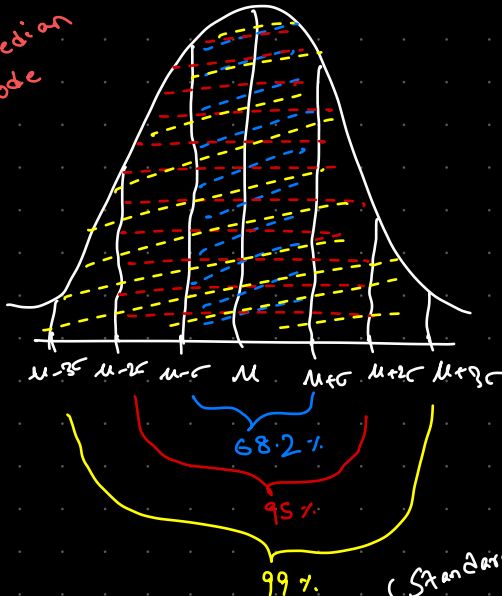 edian
ode
μ-3σ μ-2σ μ-σ μ μ+σ μ+2σ μ+3σ
68.2%
95%
99%
(Standar